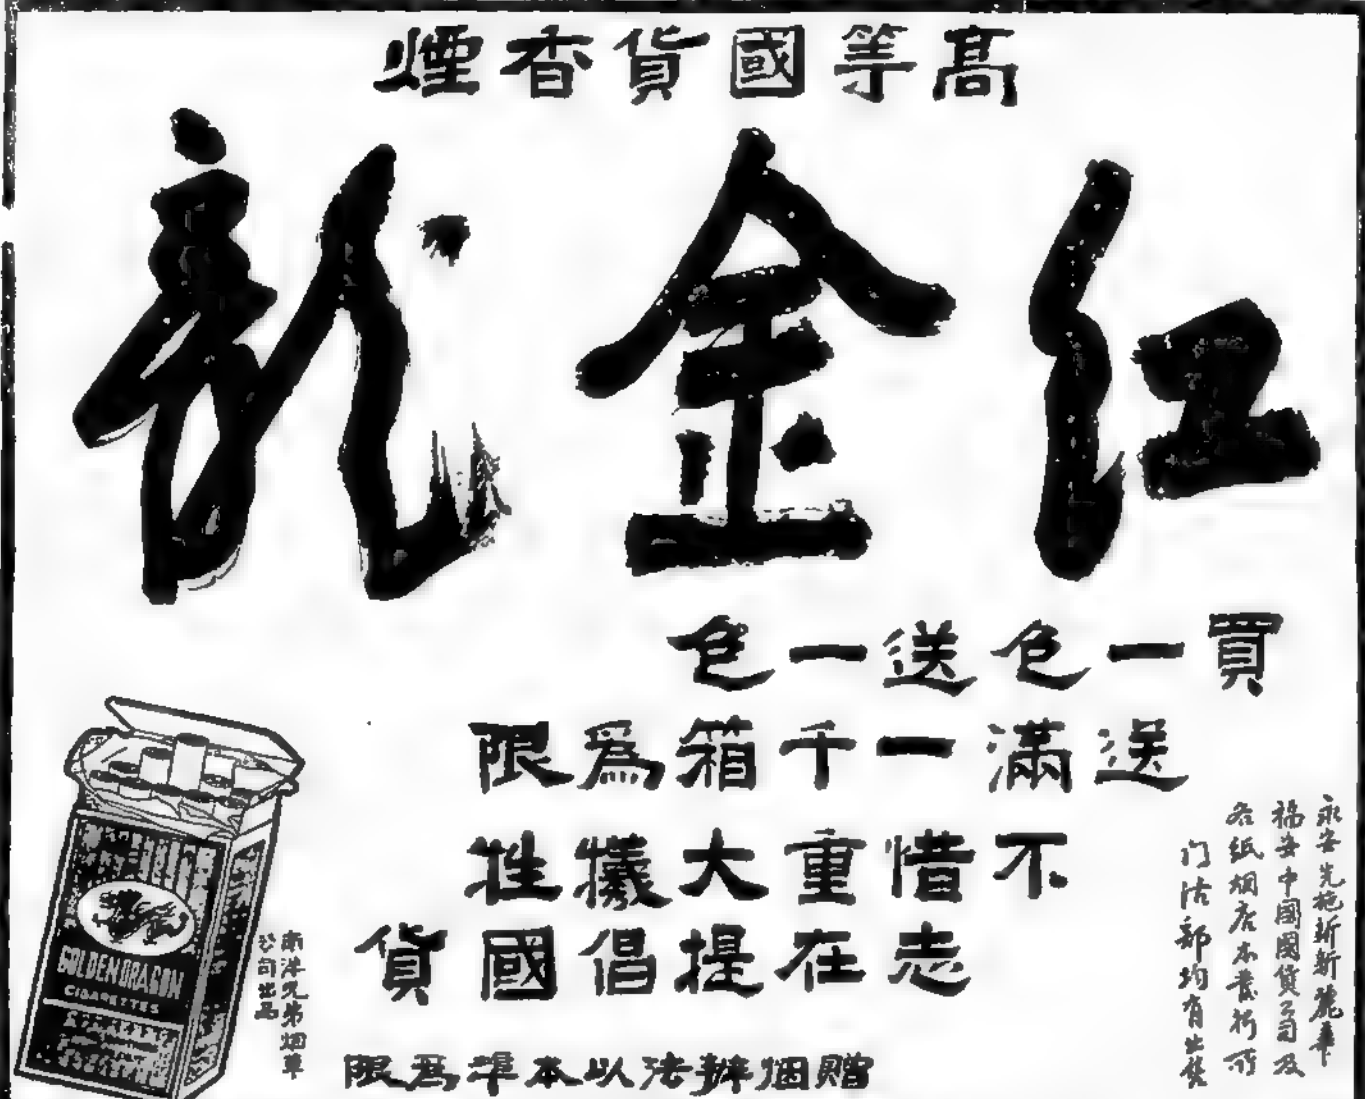 高等國貨香煙
紅金龍
買一包送一包
送滿一千箱為限
不惜重大犧牲
志在提倡國貨
贈烟辦法以本埠為限
永安先施新新麗華
福安中國國貨公司及
各紙烟店本發行所
門沽部均有出售
南洋兄弟烟草
公司出品
GOLDEN DRAGON
CIGARETTES